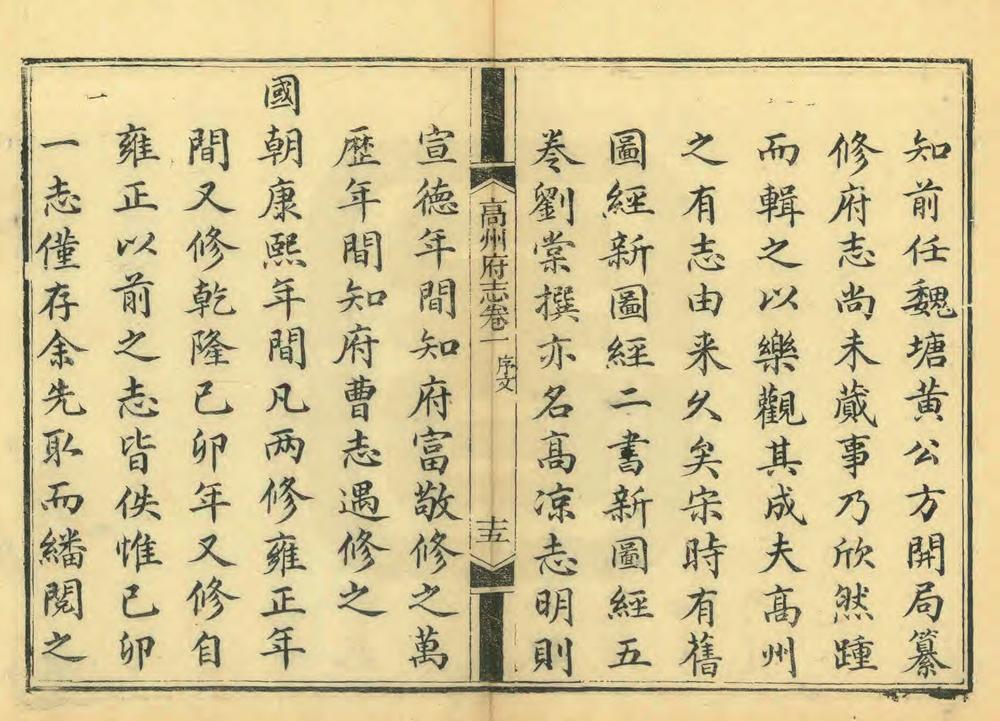 知前任魏塘黄公方開局纂
修府志尚未蕆事乃欣然踵
而輯之以樂觀其成夫髙州
之有志由来久矣宋時有舊
圖經新圖經二書新圖經五
卷劉棠撰亦名髙凉志明則
髙州府志卷一
序文
十五
宣德年間知府富敬修之萬
歷年間知府曹志遇修之
國朝康熙年間凡两修雍正年
間又修乾隆己卯年又修自
雍正以前之志皆佚惟己卯
一志僅存余先取而繙閱之